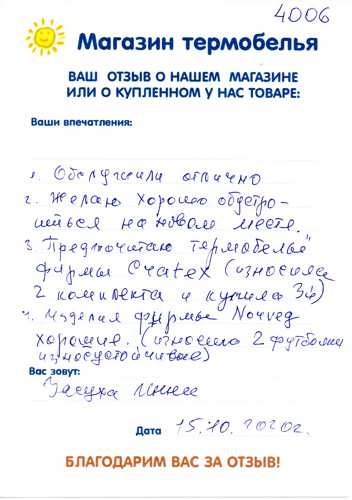 4006
Магазин термобелья
ВАШ ОТЗЫВ О НАШЕМ МАГАЗИНЕ
ИЛИ О КУПЛЕННОМ У НАС ТОВАРЕ:
Ваши впечатления:
1. Обслужили отлично
2. Желаю хорошо обустро-
иться на новом месте.
3. Предпочитаю термобелье
фирмы Cratex (износила
2 комплекта и купила 3й)
4. Изделия фирмы Norveg
хорошие. (износила 2 футболки
износоустойчивые)
Вас зовут:
Засуха
Дата 15.10.2020г.
БЛАГОДАРИМ ВАС ЗА ОТЗЫВ!